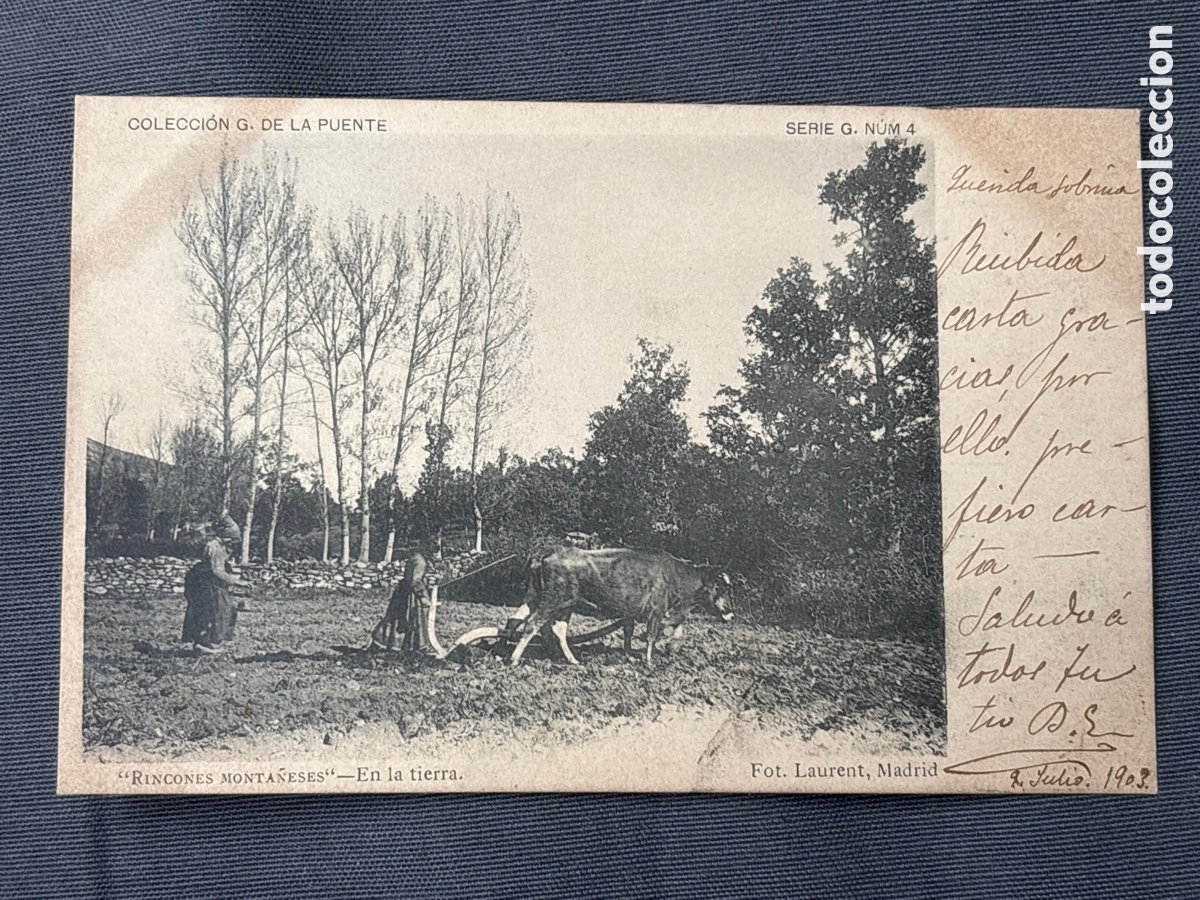 COLECCIÓN G. DE LA PUENTE
SERIE G. NÚM 4
Querida sobrina
Recibida
carta gra-
cias, por
ello. pre-
fiero car-
ta —
Saludré á
todos Tu
tio D. E
2. Julio. 1903.
"RINCONES MONTAÑESES"—En la tierra.
Fot. Laurent, Madrid
todocoleccion